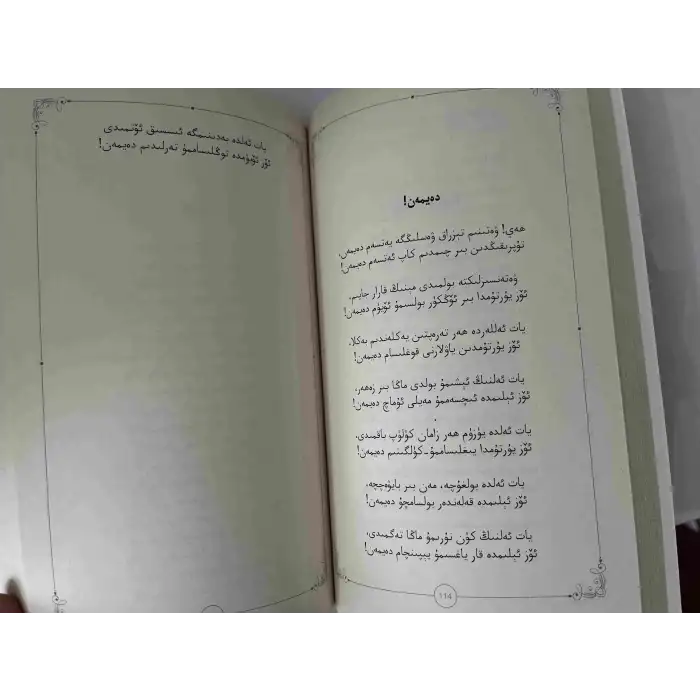 يات ئەلدە بەدىنىمگە ئىسسىق ئۆتمىدى
ئۆز ئۆيۈمدە توڭلىساممۇ تەرلىدىم دەيمەن!
دەيمەن!
ھەي! ۋەتىنىم تېزراق ۋەسلىڭگە يەتسەم دەيمەن،
تۇپرىقىڭدىن بىر چىمدىم كاپ ئەتسەم دەيمەن!
ۋەتەنسىزلىكتە بولمىدى مېنىڭ قارار جايىم،
ئۆز يۇرتۇمدا بىر ئۆڭكۈر بولسىمۇ ئۆيۈم دەيمەن!
يات ئەللەردە ھەر تەرەپتىن يەكلەندىم بەكلا،
ئۆز يۇرتۇمدىن ياۋلارنى قوغلىسام دەيمەن!
يات ئەلنىڭ ئېشىمۇ بولدى ماڭا بىر زەھەر،
ئۆز ئېلىمدە ئىچسەممۇ مەيلى ئۇماچ دەيمەن!
يات ئەلدە يۈزۈم ھەر زامان كۈلۈپ باقمىدى،
ئۆز يۇرتۇمدا يىغلىساممۇ-كۈلگىنىم دەيمەن!
يات ئەلدە بولغۇچە، مەن بىر بايۋەچچە،
ئۆز ئېلىمدە قەلەندەر بولسامچۇ دەيمەن!
يات ئەلنىڭ كۈن نۇرىمۇ ماڭا تەگمىدى،
ئۆز ئېلىمدە قار ياغسىمۇ يېپىنچام دەيمەن!
114